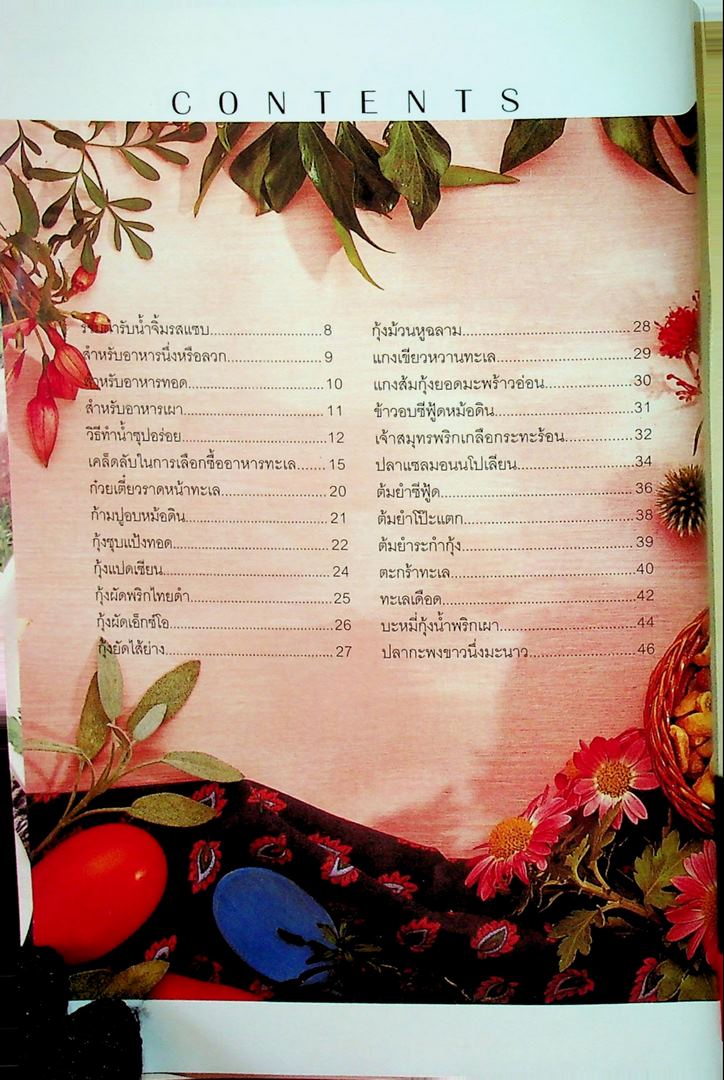 CONTENTS
รวมตำรับน้ำจิ้มรสแซบ 8
สำหรับอาหารนึ่งหรือลวก 9
สำหรับอาหารทอด 10
สำหรับอาหารเผา 11
วิธีทำน้ำซุปอร่อย 12
เคล็ดลับในการเลือกซื้ออาหารทะเล 15
ก๋วยเตี๋ยวราดหน้าทะเล 20
ก้ามปูอบหม้อดิน 21
กุ้งชุบแป้งทอด 22
กุ้งแปดเซียน 24
กุ้งผัดพริกไทยดำ 25
กุ้งผัดเอ็กซ์โอ 26
กุ้งยัดไส้ย่าง 27
กุ้งม้วนหูฉลาม 28
แกงเขียวหวานทะเล 29
แกงส้มกุ้งยอดมะพร้าวอ่อน 30
ข้าวอบซีฟู้ดหม้อดิน 31
เจ้าสมุทรพริกเกลือกระทะร้อน 32
ปลาแซลมอนนโปเลียน 34
ต้มยำซีฟู้ด 36
ต้มยำโป๊ะแตก 38
ต้มยำระกำกุ้ง 39
ตะกร้าทะเล 40
ทะเลเดือด 42
บะหมี่กุ้งน้ำพริกเผา 44
ปลากะพงขาวนึ่งมะนาว 46